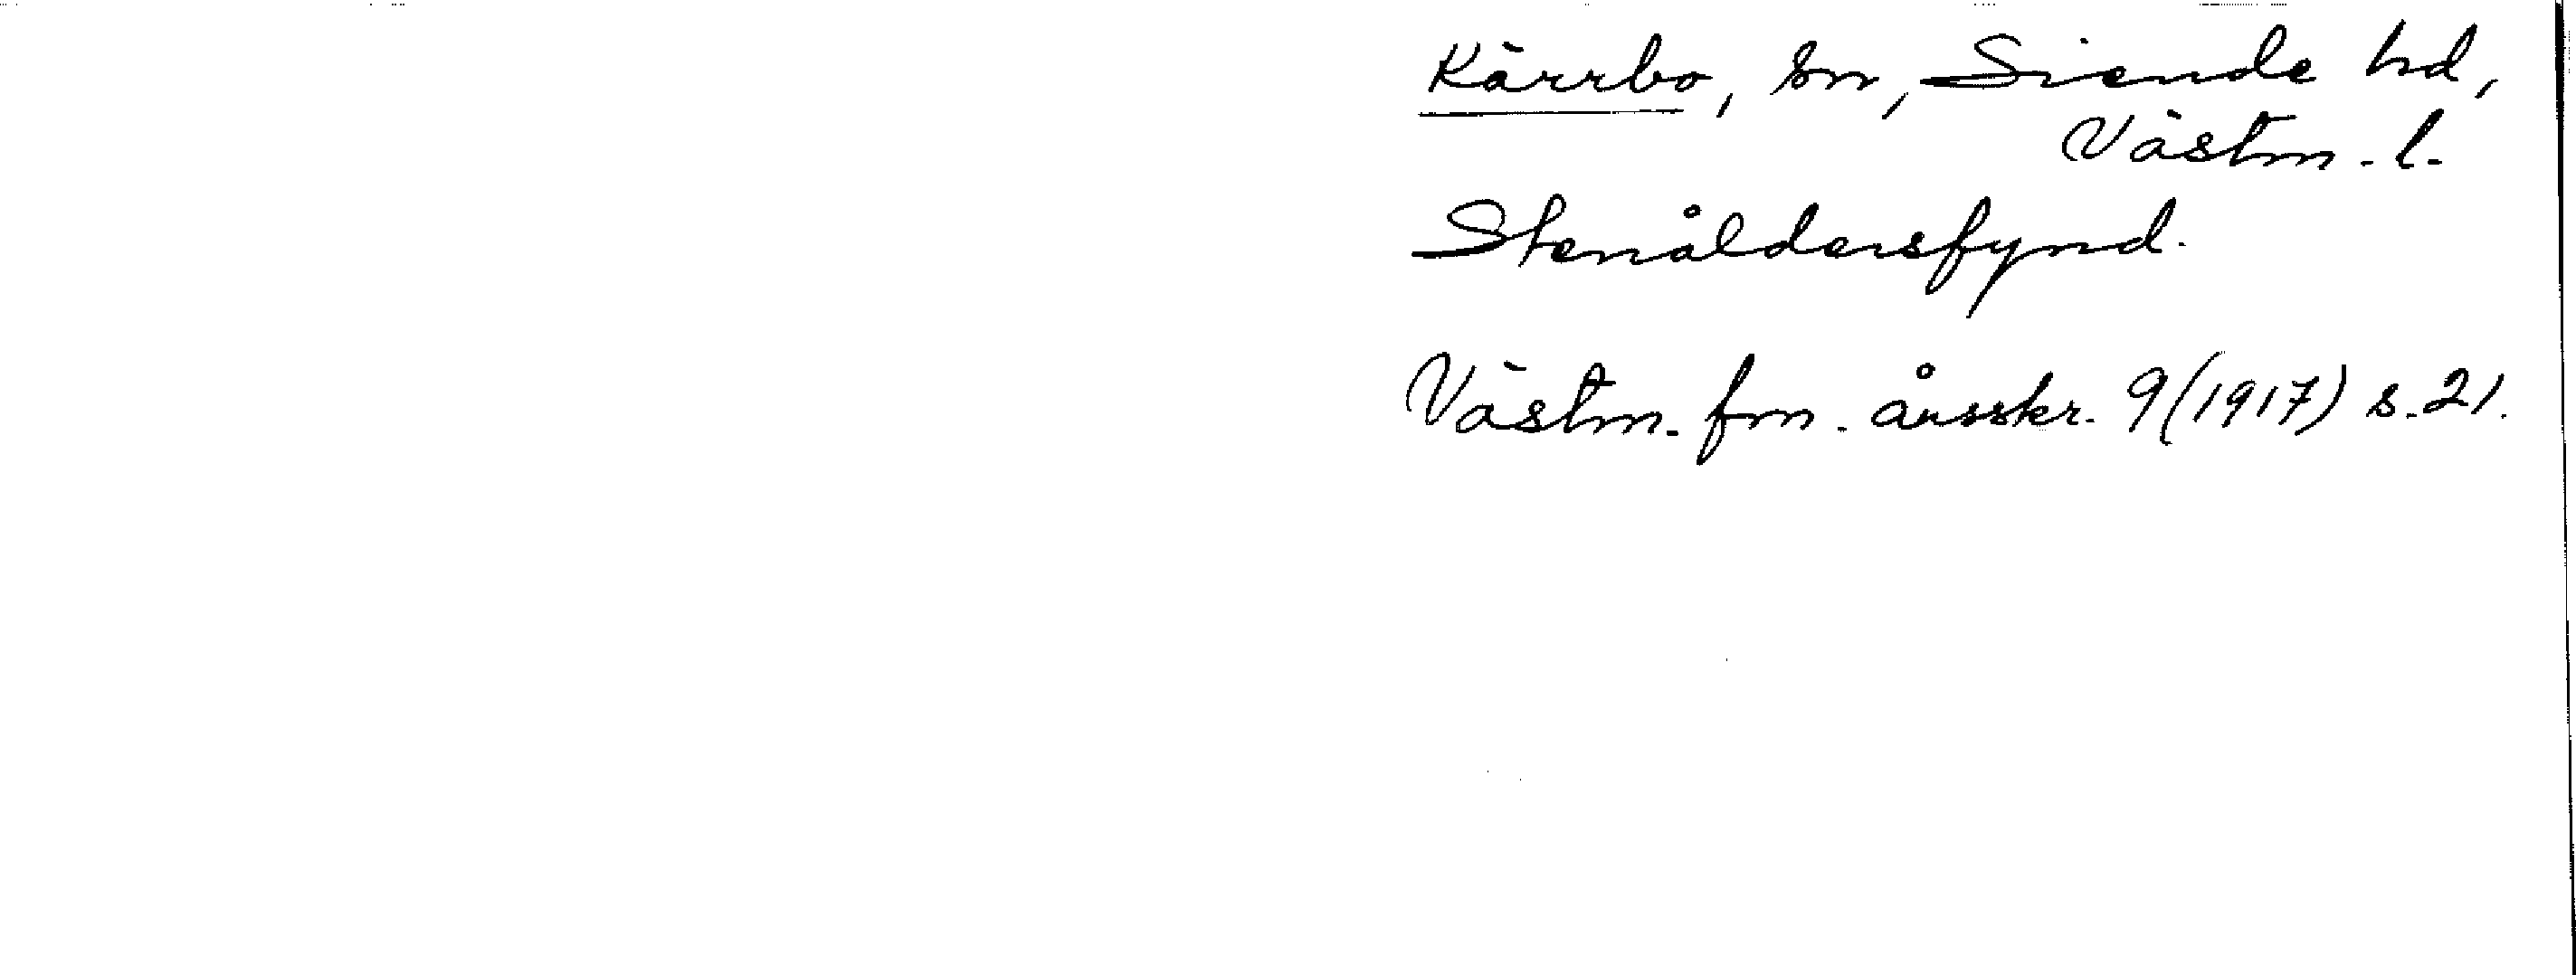 Kärrbo, sn, Siende hd,
Västm. l.
Stenåldersfynd.
Västm. fm. årsskr. 9 (1917) s. 21.